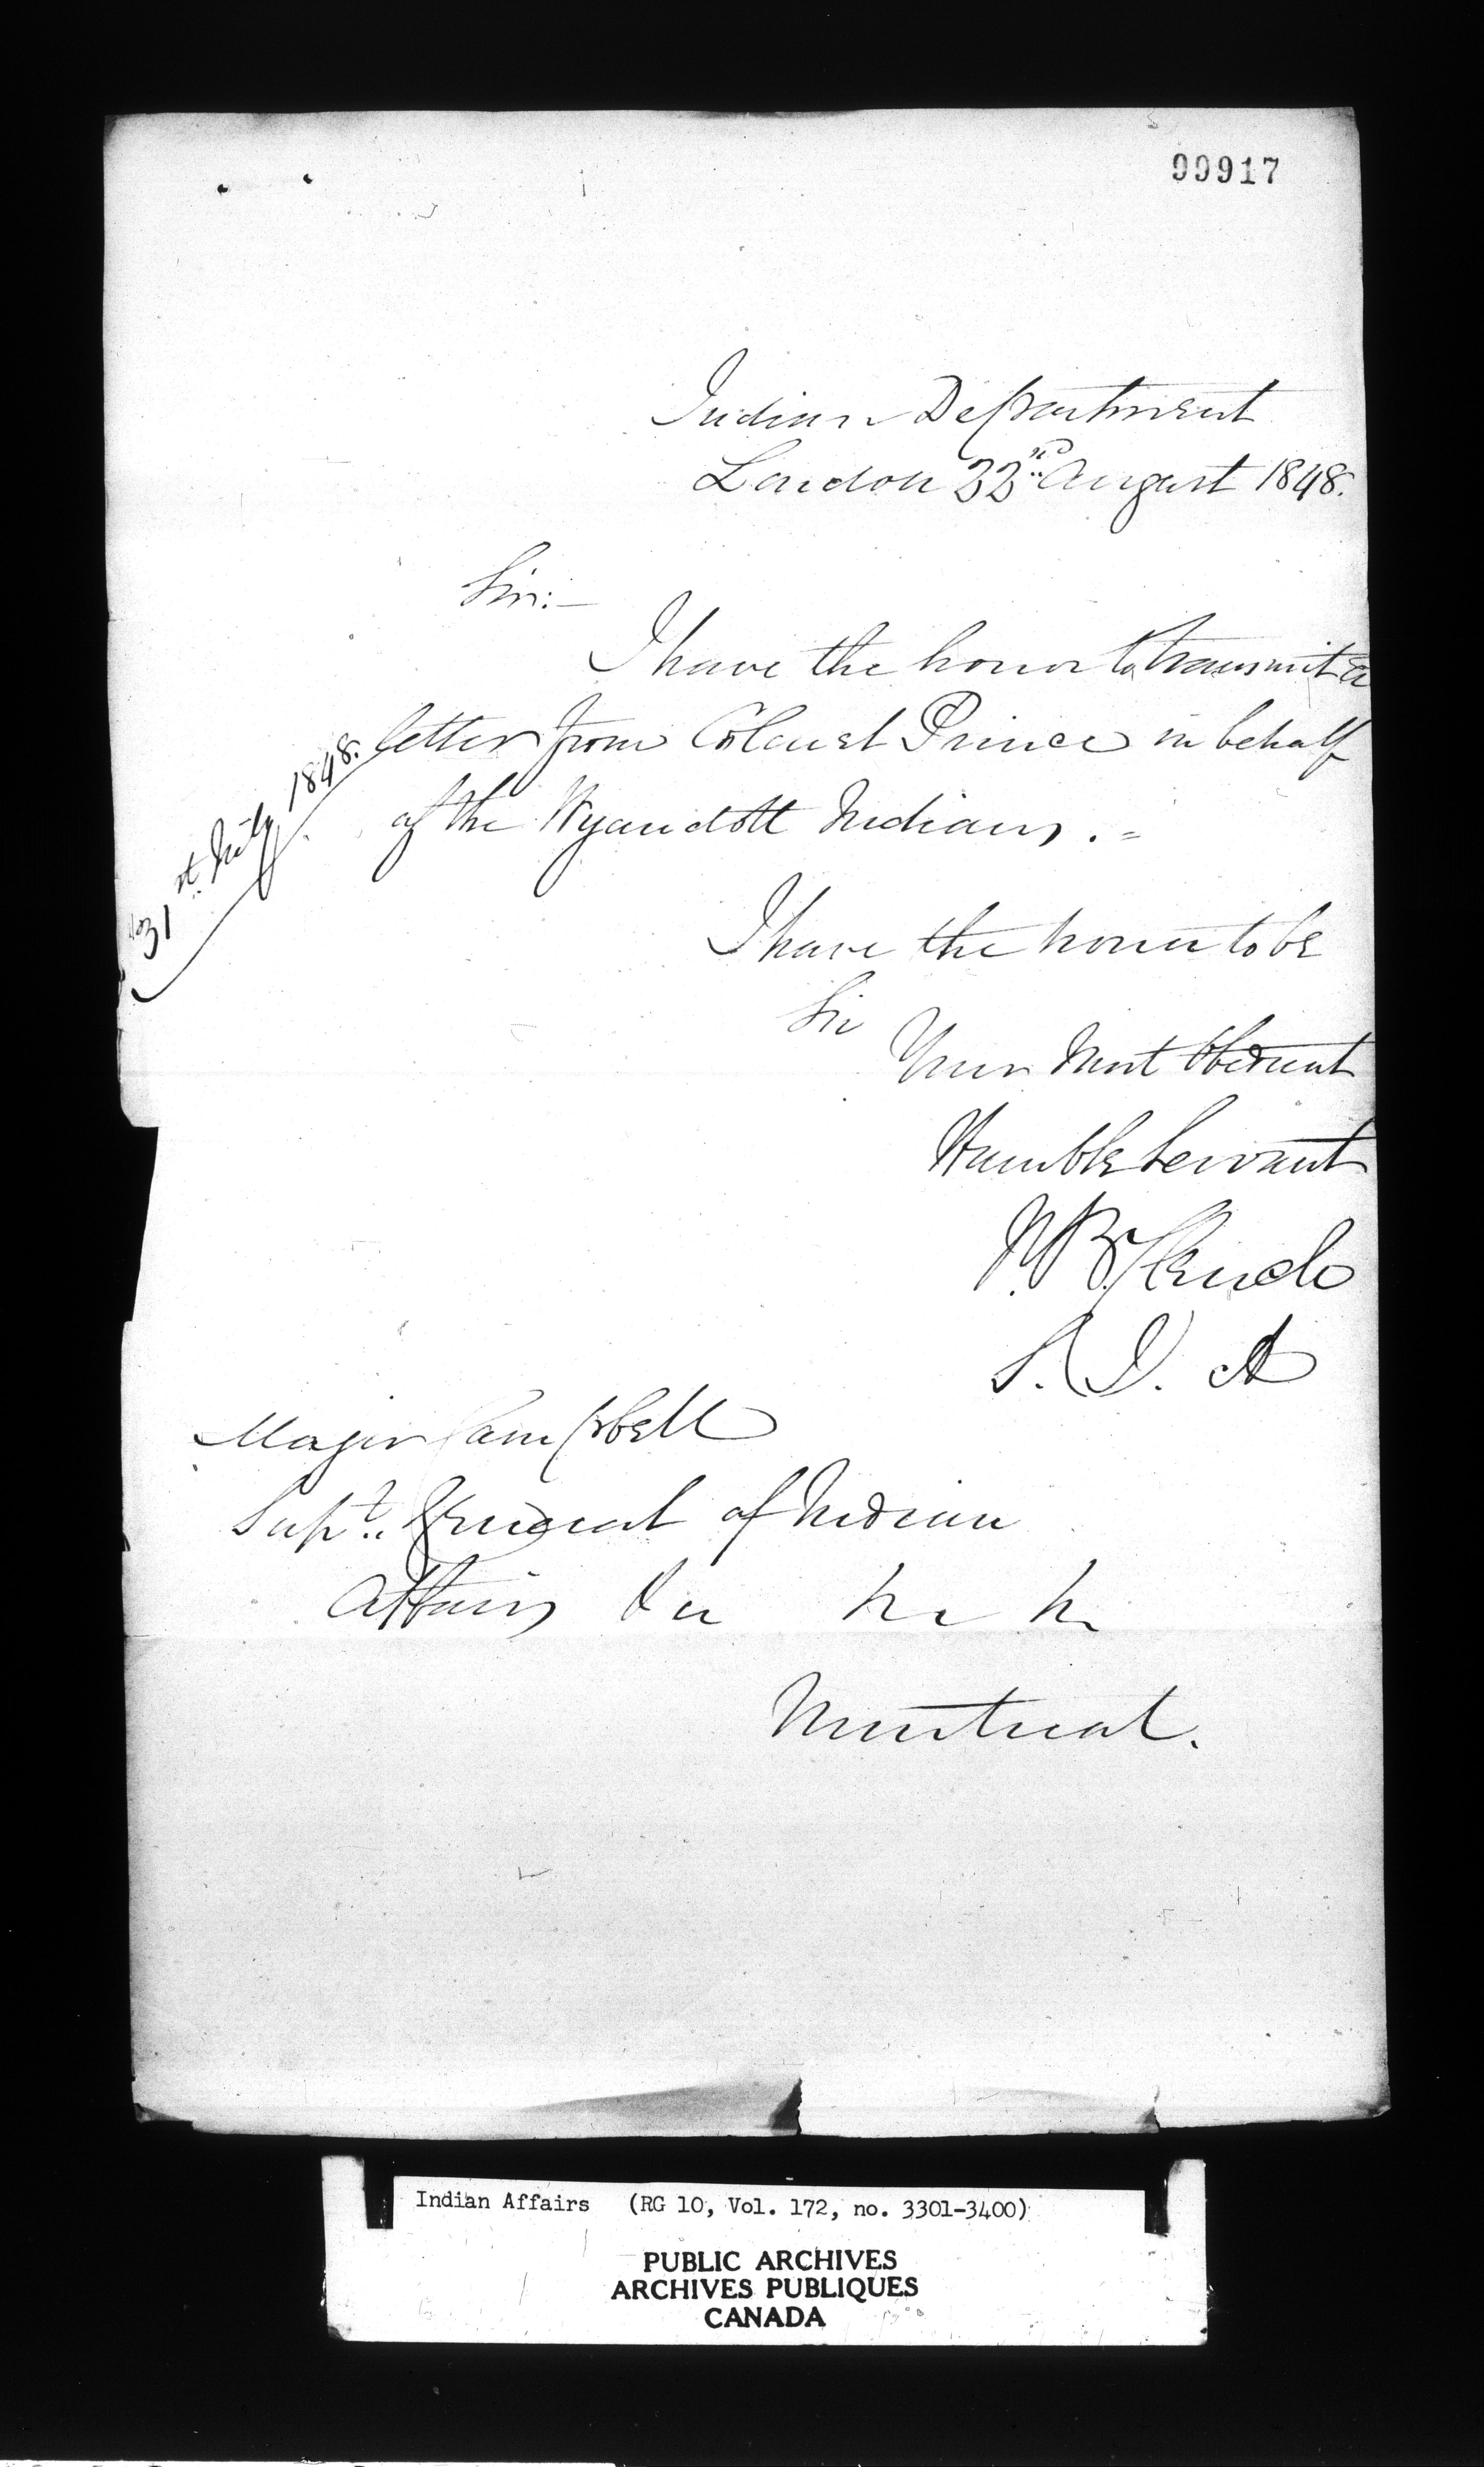 99917
Indian Department
London 22nd August 1848.
Sir:—
I have the honor to transmit a
letter from Colonel Prince in behalf
of the Wyandott Indians. =
31st July 1848.
I have the honor to be
Sir
Your Most Obedient
Humble Servant
S. I. A
Major Campbell
Supt. General of Indian
Affairs &c &c &c
Montreal.
Indian Affairs (RG 10, Vol. 172, no. 3301-3400)
PUBLIC ARCHIVES
ARCHIVES PUBLIQUES
CANADA